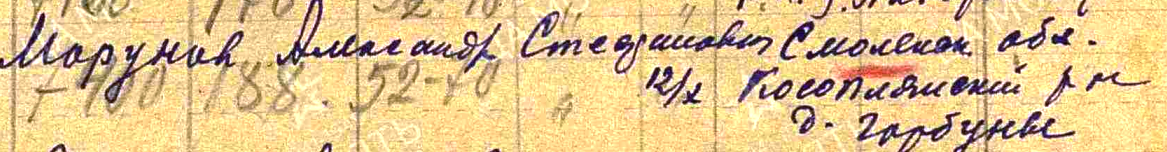 Морунов Александр Стефанович Смоленск обл.
- 100 188. 52-70 " 12/X Косоплянский р-н
д. Горбуны